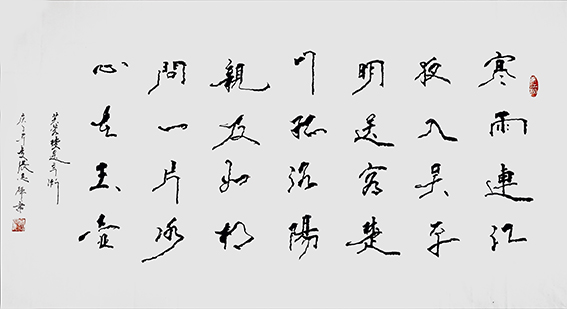 寒雨連江
夜入吴平
明送客楚
山孤洛陽
親友如相
問一片冰
心在玉壺
芙蓉楼送辛渐